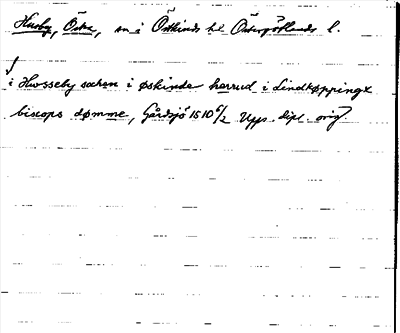 Husby, Östra, sn i Östkinds hd Östergötlands l.
i Hwsseby sochen i øskinde harrud i Lindkøppingx
biscops dømme, Gårdsjö 1510 6/2 Upps. dipl. orig.